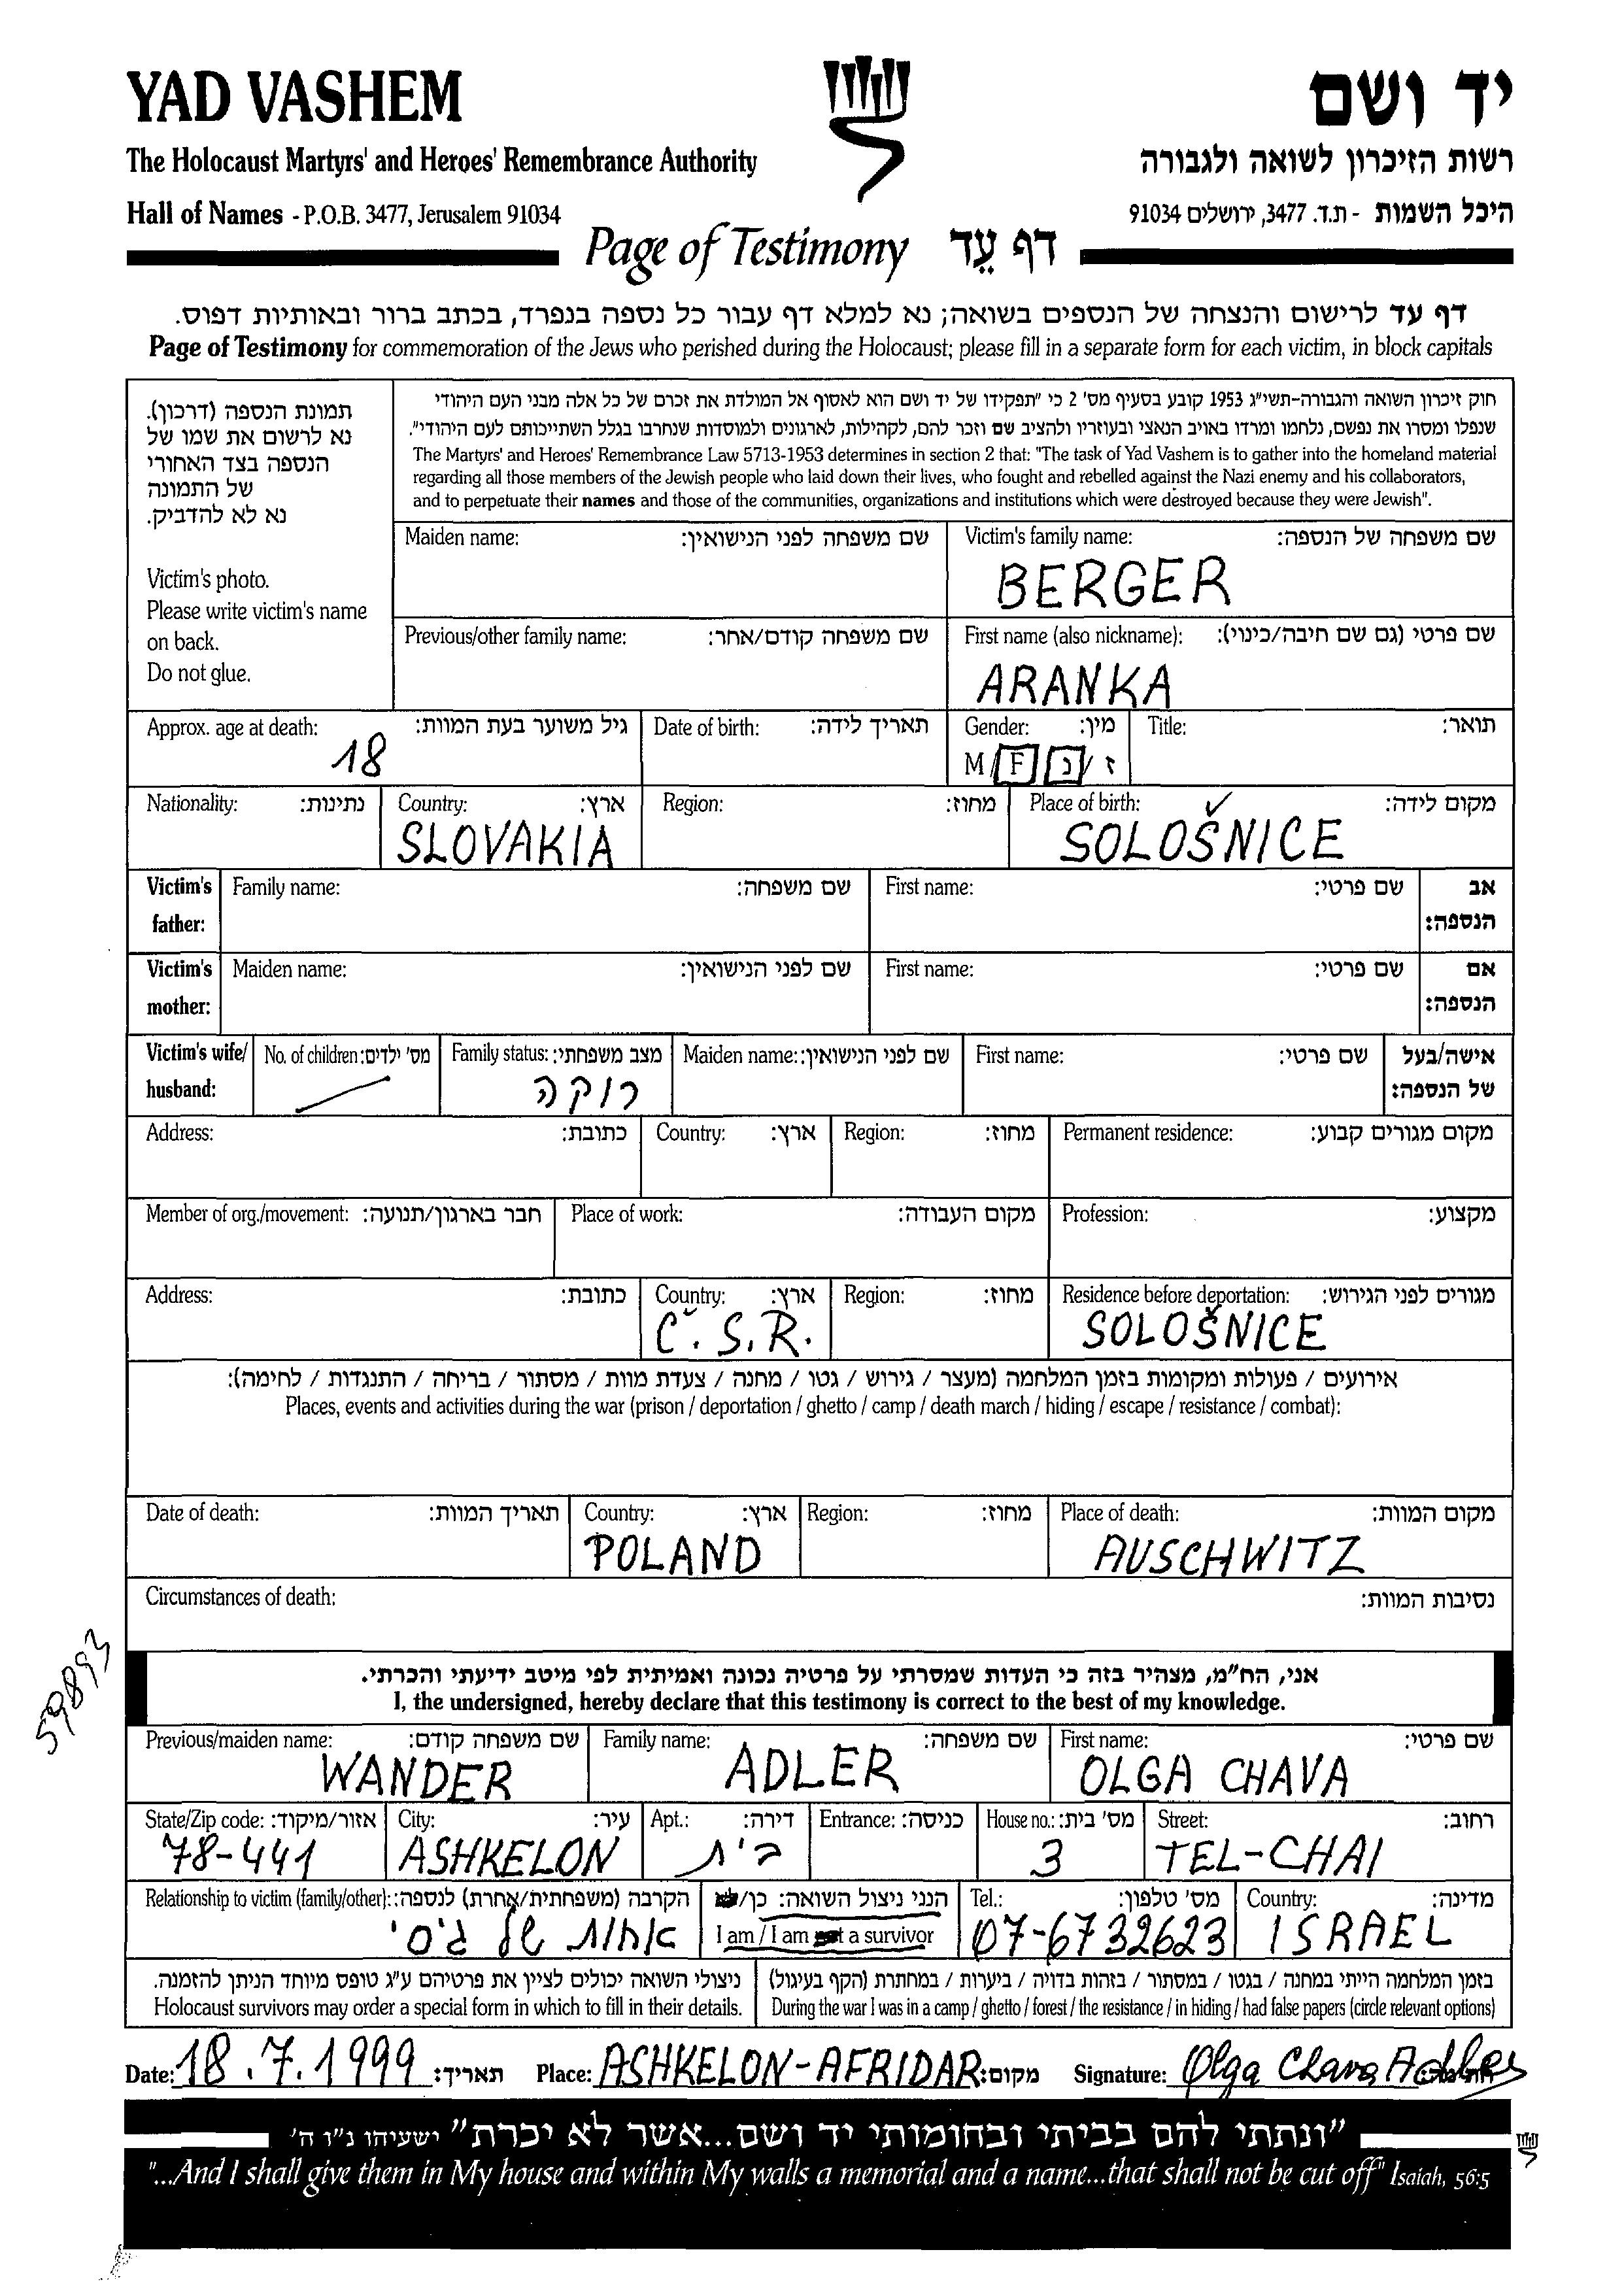 YAD VASHEM
יד ושם
The Holocaust Martyrs' and Heroes' Remembrance Authority
רשות הזיכרון לשואה ולגבורה
Hall of Names - P.O.B. 3477, Jerusalem 91034
היכל השמות - ת.ד. 3477, ירושלים 91034
Page of Testimony דף עֵד
דף עד לרישום והנצחה של הנספים בשואה; נא למלא דף עבור כל נספה בנפרד, בכתב ברור ובאותיות דפוס.
Page of Testimony for commemoration of the Jews who perished during the Holocaust; please fill in a separate form for each victim, in block capitals
תמונת הנספה (דרכון).
נא לרשום את שמו של
הנספה בצד האחורי
של התמונה
נא לא להדביק.
Victim's photo.
Please write victim's name
on back.
Do not glue.
חוק זיכרון השואה והגבורה-תשי"ג 1953 קובע בסעיף מס' 2 כי "תפקידו של יד ושם הוא לאסוף אל המולדת את זכרם של כל אלה מבני העם היהודי
שנפלו ומסרו את נפשם, נלחמו ומרדו באויב הנאצי ובעוזריו ולהציב שם וזכר להם, לקהילות, לארגונים ולמוסדות שנחרבו בגלל השתייכותם לעם היהודי".
The Martyrs' and Heroes' Remembrance Law 5713-1953 determines in section 2 that: "The task of Yad Vashem is to gather into the homeland material
regarding all those members of the Jewish people who laid down their lives, who fought and rebelled against the Nazi enemy and his collaborators,
and to perpetuate their names and those of the communities, organizations and institutions which were destroyed because they were Jewish".
Maiden name: שם משפחה לפני הנישואין: Victim's family name: שם משפחה של הנספה:
BERGER
Previous/other family name: שם משפחה קודם/אחר: First name (also nickname): שם פרטי (גם שם חיבה/כינוי):
ARANKA
Approx. age at death: גיל משוער בעת המוות: Date of birth: תאריך לידה: Gender: מין: Title: תואר:
18 M/F נ/ז
Nationality: נתינות: Country: ארץ: Region: מחוז: Place of birth: מקום לידה:
SLOVAKIA SOLOŠNICE
Victim's father: Family name: שם משפחה: First name: שם פרטי: אב הנספה:
Victim's mother: Maiden name: שם לפני הנישואין: First name: שם פרטי: אם הנספה:
Victim's wife/husband: No. of children: מס' ילדים: Family status: מצב משפחתי: Maiden name: שם לפני הנישואין: First name: שם פרטי: אישה/בעל של הנספה:
רווקה
Address: כתובת: Country: ארץ: Region: מחוז: Permanent residence: מקום מגורים קבוע:
Member of org./movement: חבר בארגון/תנועה: Place of work: מקום העבודה: Profession: מקצוע:
Address: כתובת: Country: ארץ: Region: מחוז: Residence before deportation: מגורים לפני הגירוש:
Č.S.R. SOLOŠNICE
אירועים / פעולות ומקומות בזמן המלחמה (מעצר / גירוש / גטו / מחנה / צעדת מוות / מסתור / בריחה / התנגדות / לחימה):
Places, events and activities during the war (prison / deportation / ghetto / camp / death march / hiding / escape / resistance / combat):
Date of death: תאריך המוות: Country: ארץ: Region: מחוז: Place of death: מקום המוות:
POLAND AUSCHWITZ
Circumstances of death: נסיבות המוות:
59893
אני, הח"מ, מצהיר בזה כי העדות שמסרתי על פרטיה נכונה ואמיתית לפי מיטב ידיעתי והכרתי.
I, the undersigned, hereby declare that this testimony is correct to the best of my knowledge.
Previous/maiden name: שם משפחה קודם: Family name: שם משפחה: First name: שם פרטי:
WANDER ADLER OLGA CHAVA
State/Zip code: אזור/מיקוד: City: עיר: Apt.: דירה: Entrance: כניסה: House no.: מס' בית: Street: רחוב:
78-441 ASHKELON בית 3 TEL-CHAI
Relationship to victim (family/other): הקרבה (משפחתית/אחרת) לנספה: הנני ניצול השואה: כן/ Tel.: מס' טלפון: Country: מדינה:
אחות של גיסי I am / I am not a survivor 07-6732623 ISRAEL
ניצולי השואה יכולים לציין את פרטיהם ע"ג טופס מיוחד הניתן להזמנה.
Holocaust survivors may order a special form in which to fill in their details.
בזמן המלחמה הייתי במחנה / בגטו / במסתור / בזהות בדויה / ביערות / במחתרת (הקף בעיגול)
During the war I was in a camp / ghetto / forest / the resistance / in hiding / had false papers (circle relevant options)
Date: 18.7.1999 תאריך: Place: ASHKELON-AFRIDAR מקום: Signature: Olga Chava Adler
"ונתתי להם בביתי ובחומותי יד ושם...אשר לא יכרת" ישעיהו נ"ו ה'
"...And I shall give them in My house and within My walls a memorial and a name...that shall not be cut off" Isaiah, 56:5